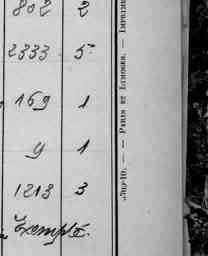 802 2
2333 5
169 1
9 1
1213 3
Exempt
5703-10. — — PARIS ET LIMOGES. — IMPRIME